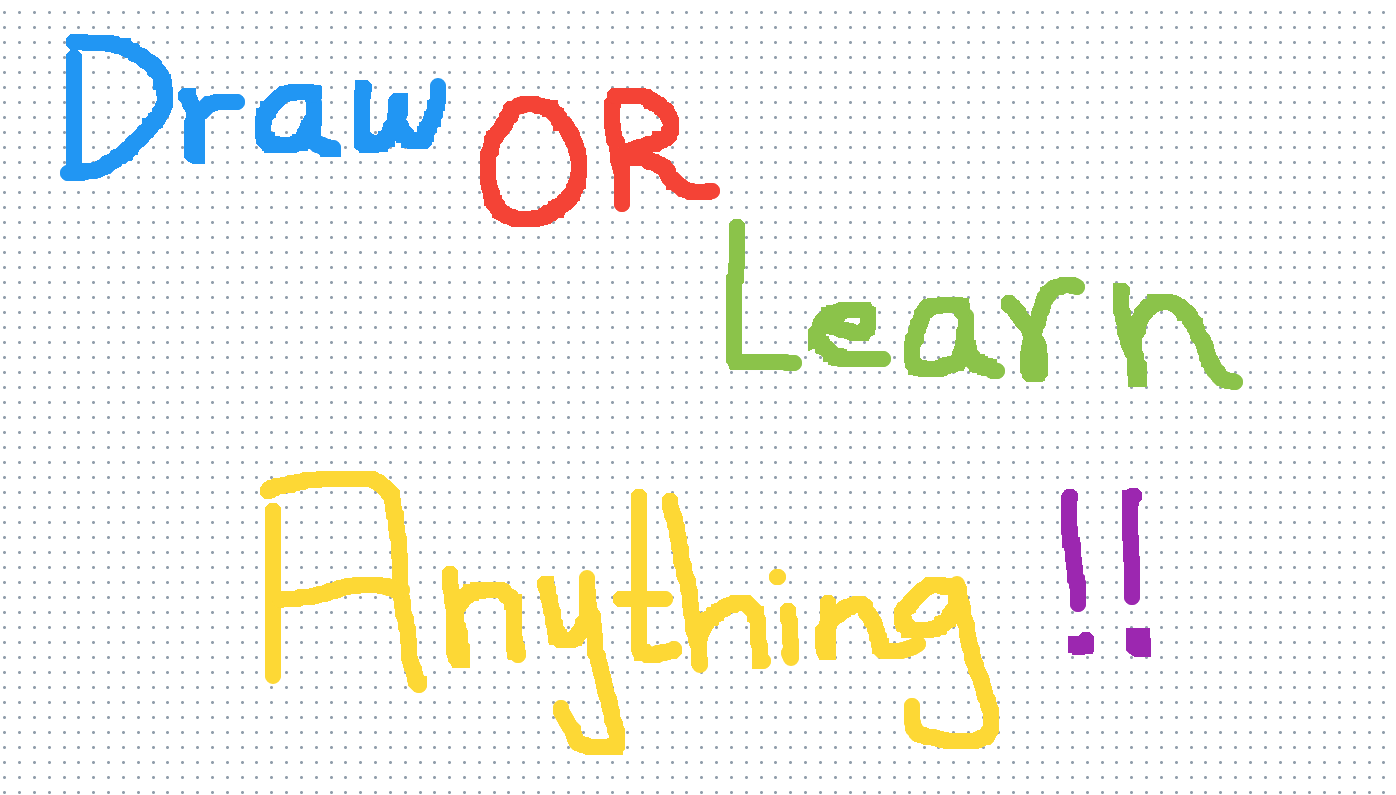 Draw OR
Learn
Anything !!